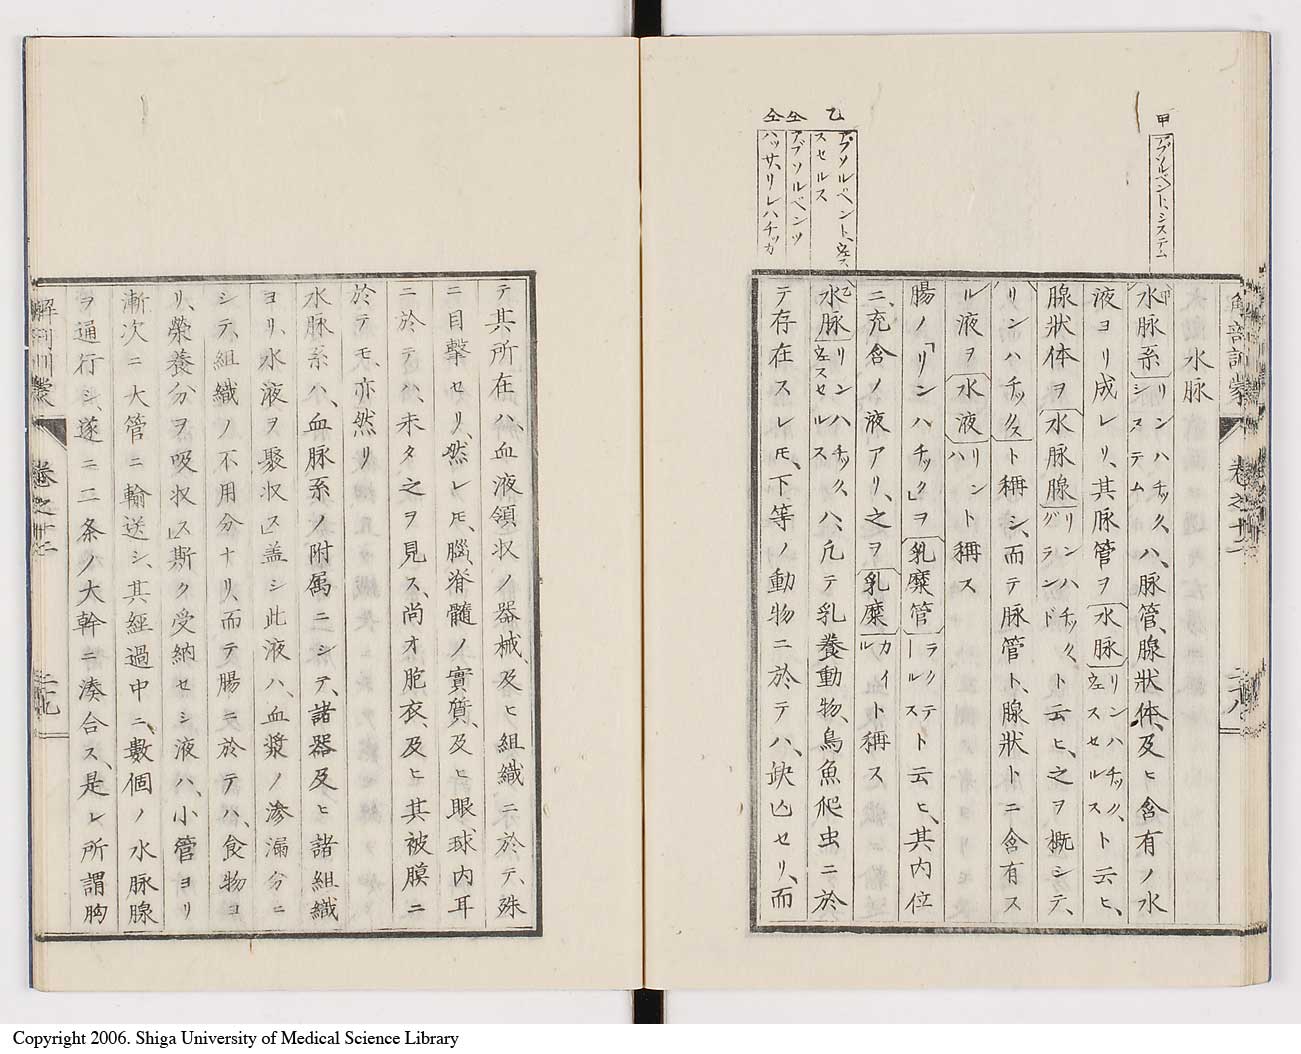 甲
アブソルベント、システム
乙
アブソルベント、ウェス
スセルス
仝
アブソルベンツ
仝
ハッサ、リムハチッカ
解剖訓蒙 卷之十一 二八
水脉
水脉系リンハチック、システムハ、脉管、腺狀体、及ヒ含有ノ水
液ヨリ成レリ、其脉管ヲ水脉リンハチック、ウェスセルスト云ヒ、
腺狀体ヲ水脉腺リンハチック、グランドト云ヒ、之ヲ概シテ、
リンハチックスト稱シ、而テ脉管ト、腺狀トニ含有ス
ル液ヲ水液リンハト稱ス
腸ノ「リンハチック」ヲ乳糜管ラクテールスト云ヒ、其内位
ニ、充含ノ液アリ、之ヲ乳糜カイルト稱ス
水脉リンハチック、ウェスセルスハ、凡テ乳養動物、鳥魚爬虫ニ於
テ存在スレ𪜈、下等ノ動物ニ於テハ、缺亾セリ、而
テ其所在ハ、血液領収ノ器械、及ヒ組織ニ於テ、殊
ニ目擊セリ、然レ𪜈、腦脊髓ノ實質、及ヒ眼球、内耳
ニ於テハ、未タ之ヲ見ス、尚オ胞衣、及ヒ其被膜ニ
於テモ、亦然リ
水脉系ハ、血脉系ノ附属ニシテ、諸器及ヒ諸組織
ヨリ、水液ヲ聚収ス、盖シ此液ハ、血漿ノ滲漏分ニ
シテ、組織ノ不用分ナリ、而テ腸ニ於テハ、食物ヨ
リ、榮養分ヲ吸収ス、斯ク受納セシ液ハ、小管ヨリ
漸次ニ大管ニ輸送シ、其經過中ニ、數個ノ水脉腺
ヲ通行シ、遂ニ二条ノ大幹ニ湊合ス、是レ所謂胸
解剖訓蒙 卷之十一 二九
Copyright 2006. Shiga University of Medical Science Library